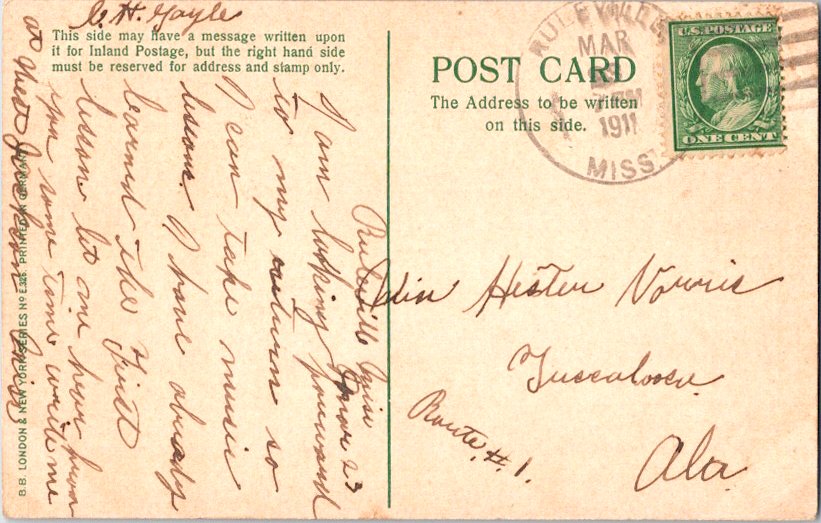 C. H. Gayle
This side may have a message written upon
it for Inland Postage, but the right hand side
must be reserved for address and stamp only.
Ruleville Miss
Mar 23
I am looking forward
to my return so
I can take music
lesson. I have already
learned the First
lesson let me hear from
you some time write me
at West Jackson Miss
B.B. LONDON & NEW YORK SERIES No E.326. PRINTED IN GERMANY
POST CARD
The Address to be written
on this side.
RULEVILLE
MAR
1911
MISS
U.S. POSTAGE
ONE CENT
Hester Norris
Tuscaloosa
Route #1.
Ala